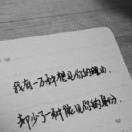 我有一万种想见你的理由，
却少了一种能见你的身份